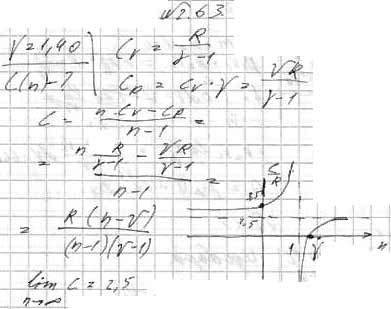 №2.63.
γ=1,40
C(n)-?
Cv = R / γ-1
Cp = Cv·γ = γR / γ-1
C = n·Cv-Cp / n-1 =
= n R/γ-1 - γR/γ-1 / n-1 =
= R(n-γ) / (n-1)(γ-1)
lim C = 2,5
n→∞
C/R
3,5
2,5
1 γ n